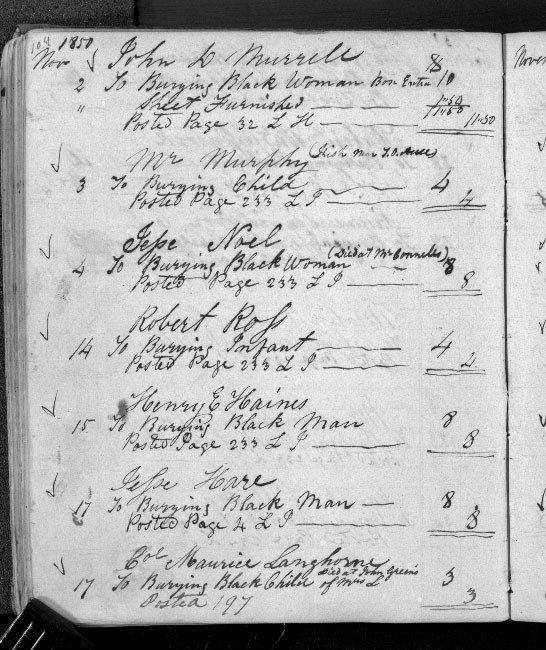 104 1850
Nov John L Murrell $
2 To Burying Black Woman Box Extra 10
" Sheet Furnished 1"50
11"50
Posted Page 32 L H 11"50
Mr Murphy (Irish Man
3 To Burying Child 4
Posted Page 233 L I 4
Jesse Noel
(Died at McConnells)
4 To Burying Black Woman 8
Posted Page 233 L I 8
Robert Ross
14 To Burying Infant 4
Posted Page 233 L I 2
Henry E Haines
15 To Burying Black Man 8
Posted Page 233 L I 8
Jesse Hare
17 To Burying Black Man 8
Posted Page 4 L I 8
Col Maurice Langhorne
Died at John Greens
17 To Burying Black Child of Mrs L 3
Posted 197 3
Novem